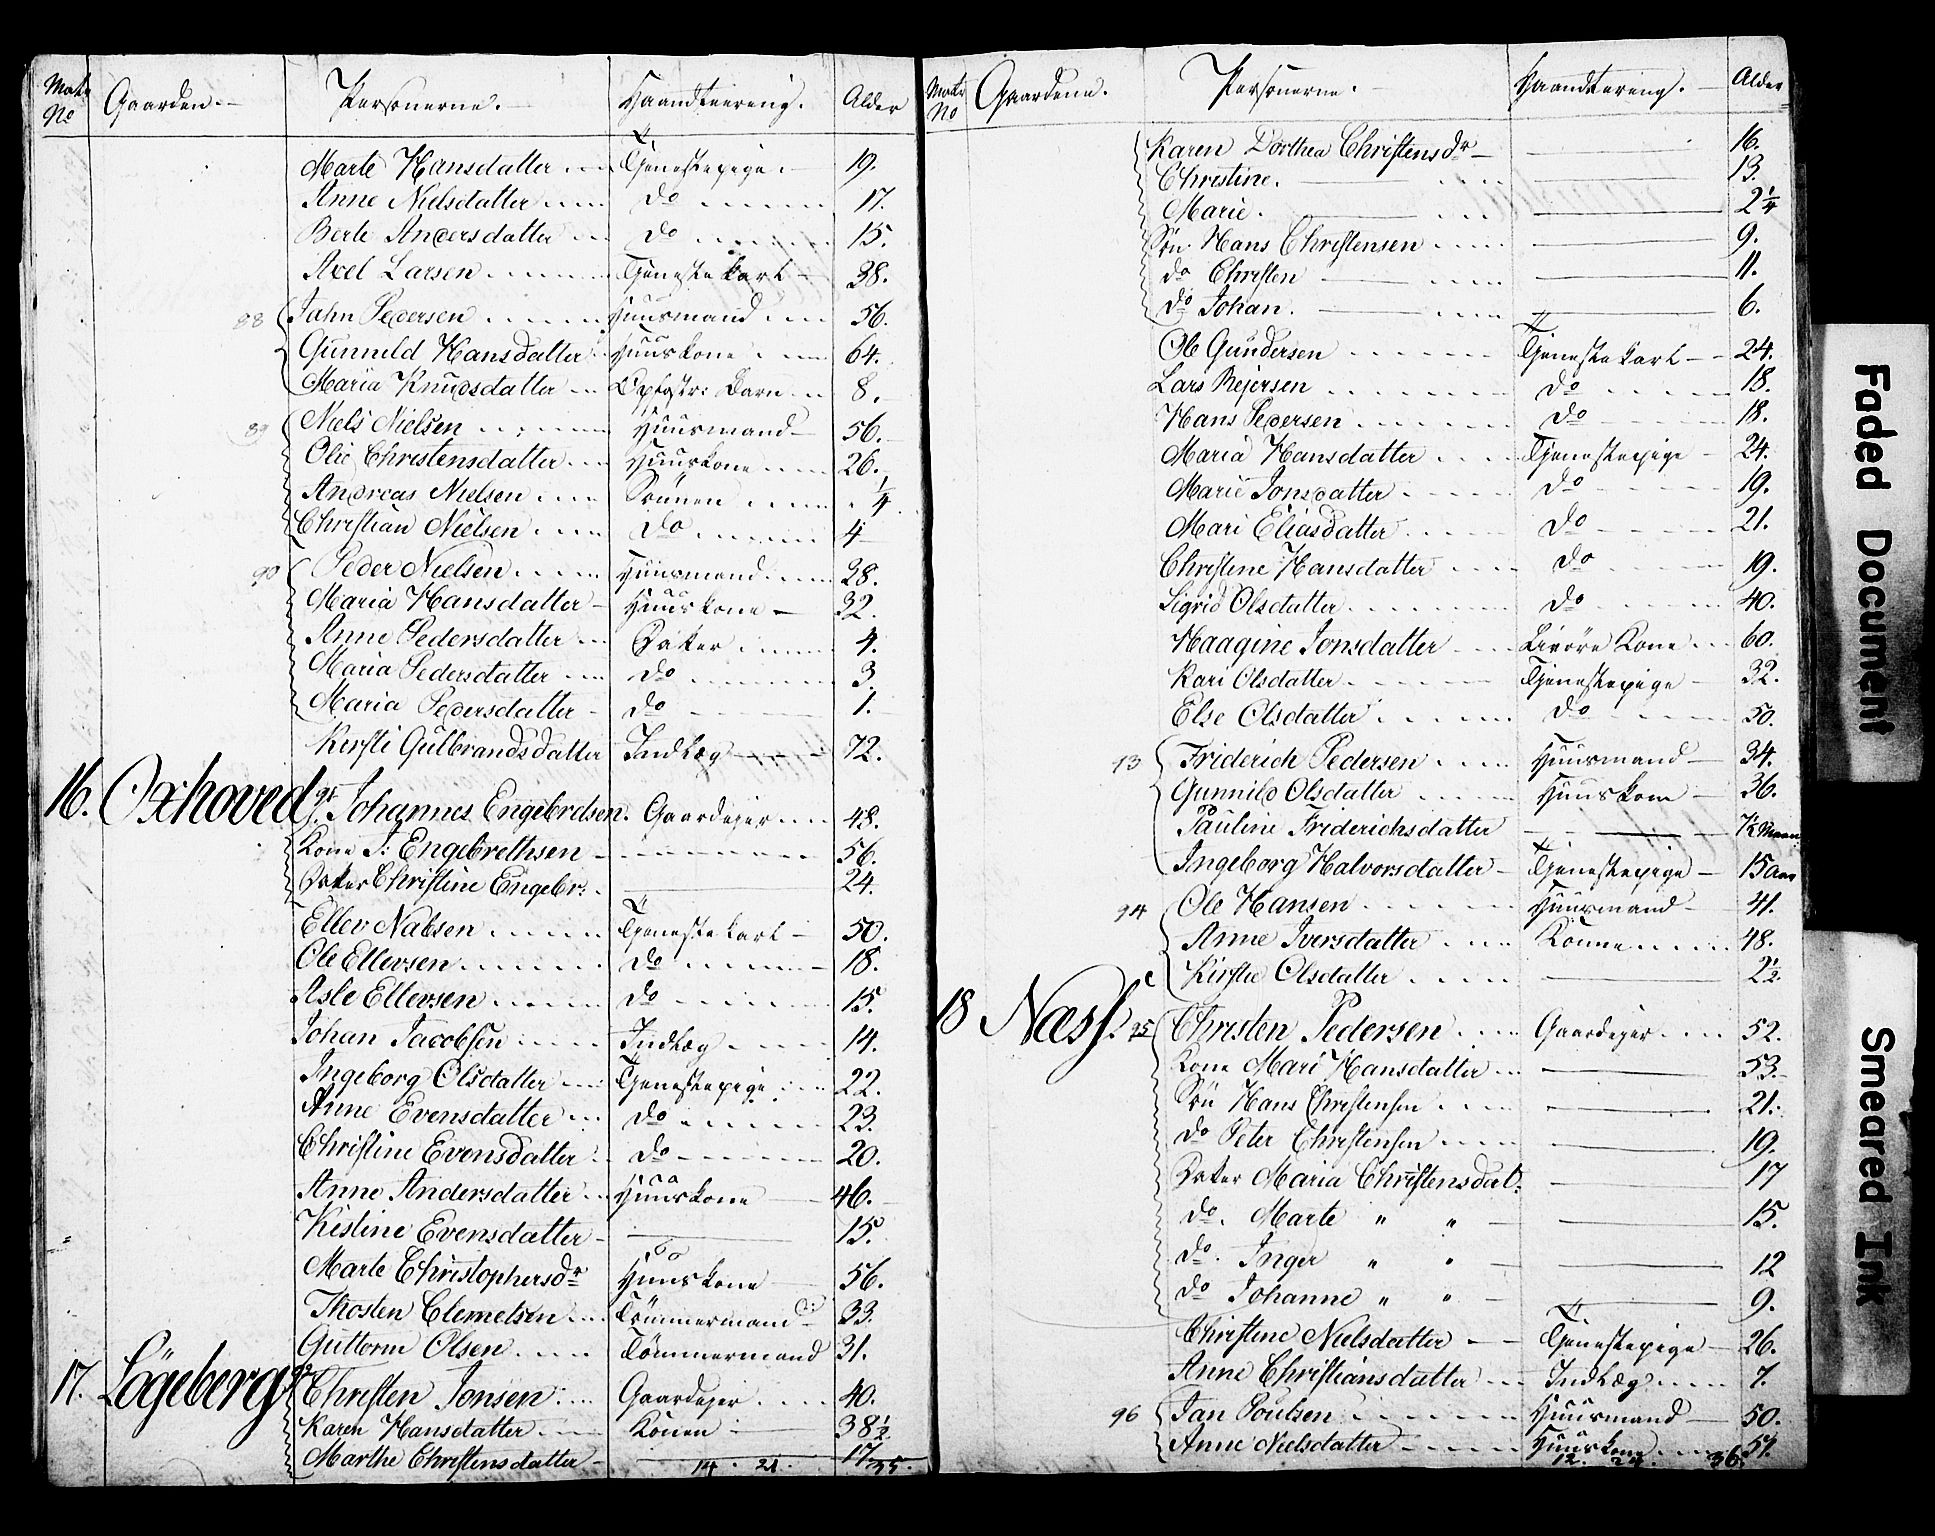 Matr No Gaarden. Personerne. Haandteering. Alder
Marte Hansdatter Tjenestepige 19.
Anne Nielsdatter do 17.
Berte Andersdatter do 15.
Axel Larsen Tjenestekarl 38.
88 Jahn Pedersen Huusmand 56.
Gunneld Hansdatter Huuskone 64.
Maria Knudsdatter Opfostr: Barn 8.
89 Niels Nielsen Huusmand 56.
Olie Christensdatter Huuskone 26.
Andreas Nielsen Sönnen 1/4
Christian Nielsen do 4
90 Peder Nielsen Huusmand 38.
Maria Hansdatter Huuskone 32.
Anne Pedersdatter Datter 4.
Maria Pedersdatter do 3.
Maria Pedersdatter do 1.
Kersti Gulbrandsdatter Indlæg 72.
16. Oxhoved 91 Johannes Engebretsen. Gaardejer 48.
Kone J: Engebrethsen 56.
Datter Christine Engebr: 24.
Ellev Nalsen Tjenestekarl 50.
Ole Ellevsen do 18.
Asle Ellevsen do 15.
Johan Jacobsen Indlæg 14.
Ingeborg Olsdatter Tjenestepige 22.
Anne Evensdatter do 23.
Christine Evensdatter do 20.
Anne Andersdatter Huuskone 46.
Kistine Evensdatter 15.
Marte Christophersdr Huuskone 56.
Thosten Clemetsen Tömmermand 33.
Guttorm Olsen Tömmermand 31.
17. Lögeberg 92 Christen Jonsen Gaardejer 40.
Karen Hansdatter Konen 38 1/2
Marthe Christensdatter 17.
14. 21. 35.
Matr No Gaardene. Personerne. Haandtering. Alder
Karen Dorthea Christensdr 16.
Christine. 13.
Marie. 2 1/4
Sön Hans Christensen 9.
do Christen 11.
do Johan. 6.
Ole Gundersen Tjenestekarl 24.
Lars Rejersen do 18.
Hans Pedersen do 18.
Maria Hansdatter Tjenestepige 24.
Marie Jonsdatter do 19.
Mari Eliasdatter do 21.
Christine Hansdatter do 19.
Sigrid Olsdatter do 40.
Haagine Jonsdatter Livöre Kone 60.
Kari Olsdatter Tjenestepige 32.
Else Olsdatter do 50.
93 Friderich Pedersen Huusmand 34.
Gunnild Olsdatter Huuskone 36.
Pauline Friderichsdatter 7 1/2 Maan
Ingeborg Halvorsdatter Tjenestepige 15 Aar
94 Ole Hansen Huusmand 41.
Anne Iversdatter Konne 48.
Kirstie Olsdatter 2 1/2
18 Næss. 95 Christen Pedersen Gaardejer 52.
Kone Mari Hansdatter 53.
Sön Hans Christensen 21.
do Peter Christensen 19.
Datter Maria Christensdat: 17
do. Marte " " 15.
do. Inger " " 12
do Johanne " " 9.
Christene Nielsdatter Tjenestepige 26.
Anne Christiansdatter Indlæg 7.
96 Jan Poulsen Huusmand 50.
Anne Nielsdatter Huuskone 57.
12. 24. 36.
Faded Document
Smeared Ink